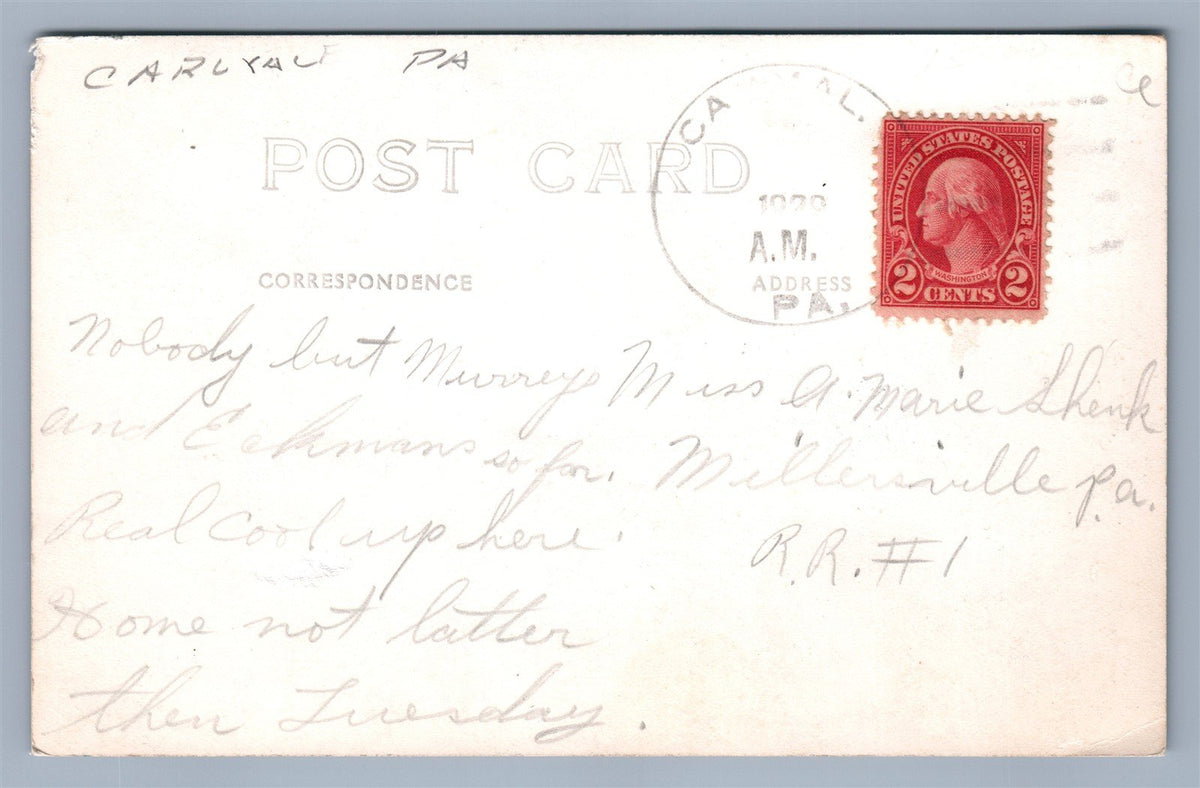 CARLYALE PA
POST CARD
CA
AL.
A.M.
PA.
UNITED STATES POSTAGE
WASHINGTON
2 CENTS 2
CORRESPONDENCE
ADDRESS
Nobody but Murreys
and Eckmans so far.
Real Cool up here.
Home not latter
then Tuesday.
Miss A. Marie Shenk
Millersville Pa.
R.R. #1